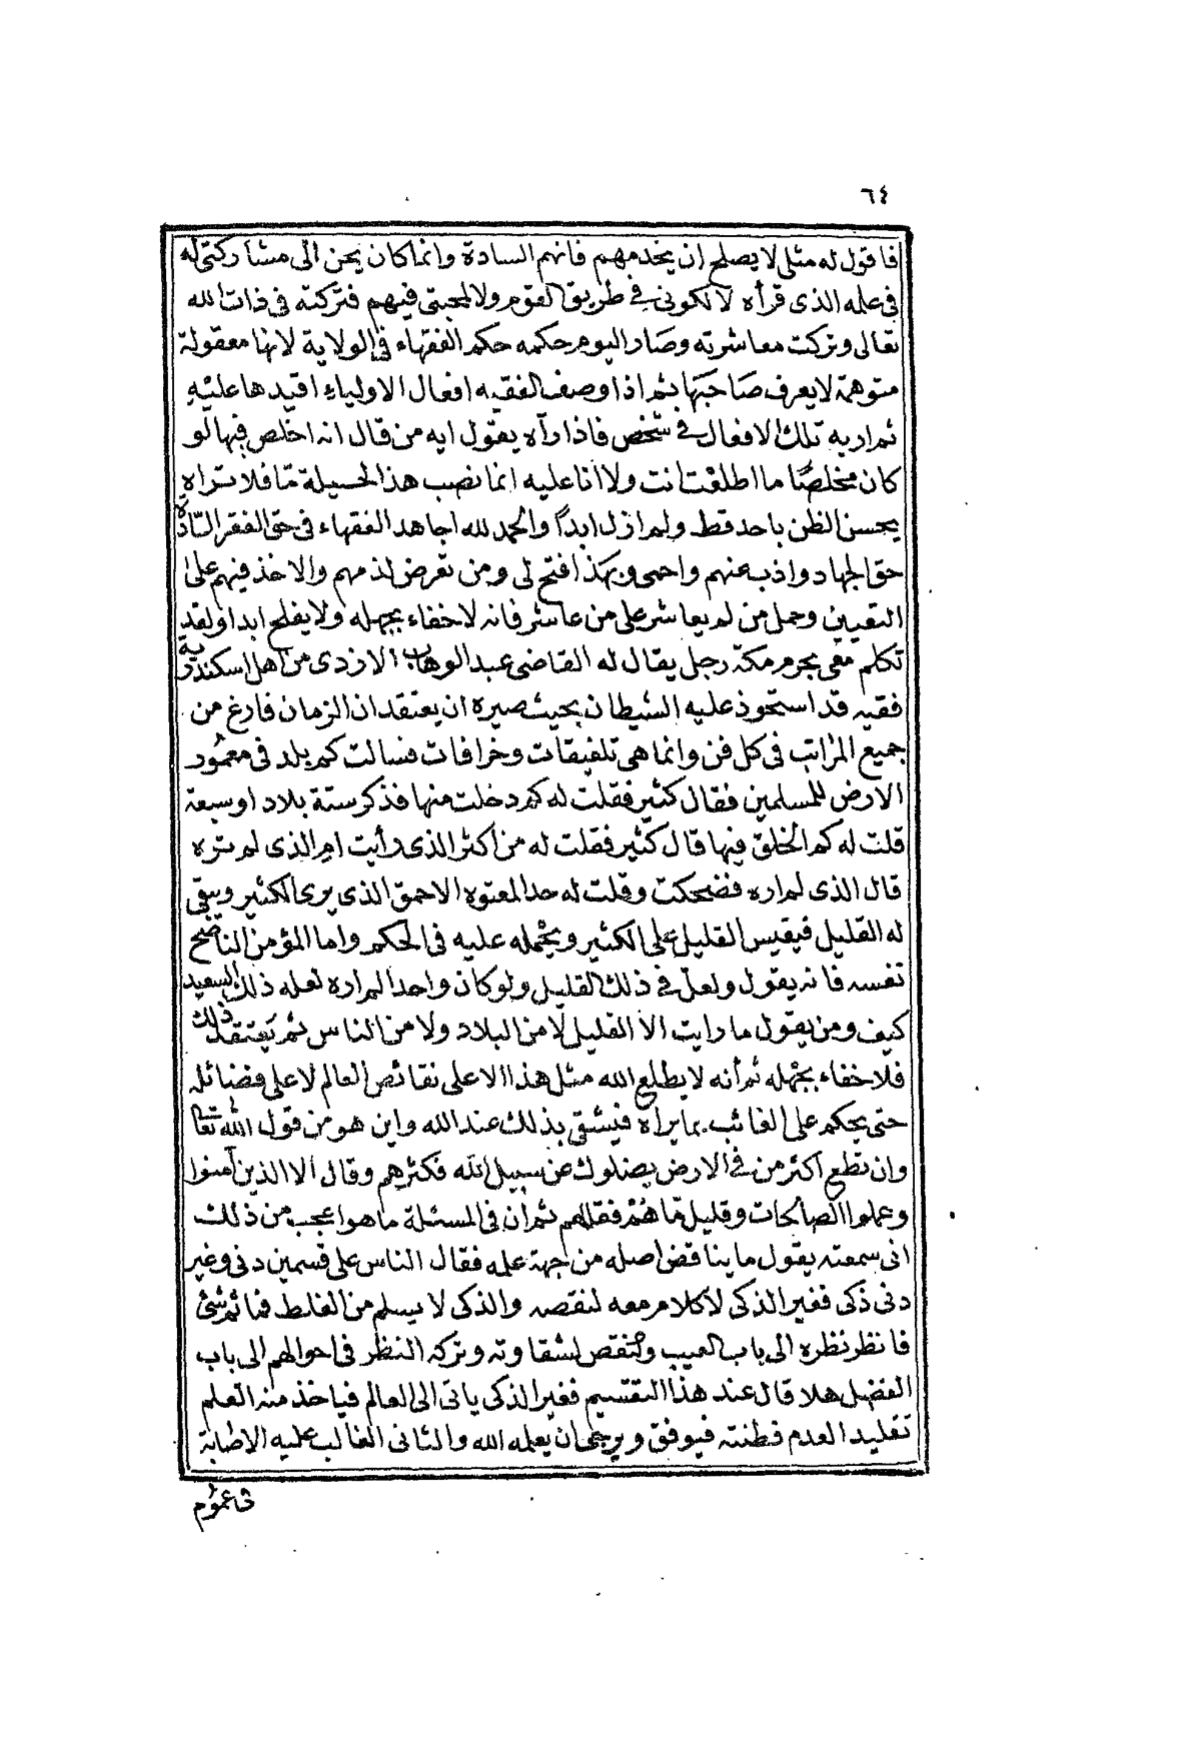 ٦٤
فاقول له مثلى لا يصلح ان يخدمهم فانهم السادة وانما كان يحن الى مشاركتى له
فى علمه الذى قرأه لا لكونى فى طريق القوم ولا لمحبتى فيهم فتركته فى ذات الله
تعالى وتركت معاشرته وصار اليوم حكمه حكم الفقهاء فى الولاية لانها معقولة
متوهمة لا يعرف صاحبها ثم اذا وصف الفقيه افعال الاولياء اقيدها عليه
ثم اريه تلك الافعال فى شخص فاذا رآه يقول ايه من قال انه اخلص فيها لو
كان مخلصًا ما اطلعت انت ولا انا عليه انما نصب هذا لحسيلة مّا فلا تراه
يحسن الظن باحد قط ولم ازل ابداً والحمد لله اجاهد الفقهاء فى حق الفقراء السّادة
حق الجهاد واذب عنهم واحمى وبهذا فتح لى ومن تعرض لذمهم والاخذ فيهم على
التعيين وحمل من لم يعاشر على من عاشر فانه لا خفاء بجهله ولا يفلح ابدا ولقد
تكلم معى بحرم مكّة رجل يقال له القاضى عبد الوهاب الازدى من اهل اسكندرية
فقيه قد استحوذ عليه الشيطان بحيث صيره ان يعتقد ان الزمان فارغ من
جميع المراتب فى كل فن وانما هى تلفيقات وخرافات فسالت كم بلد فى معمور
الارض للمسلمين فقال كثير فقلت له كم دخلت منها فذكر ستة بلاد او سبعة
قلت له كم الخلق فيها قال كثير فقلت له من اكثر الذى رأيت ام الذى لم تره
قال الذى لم اره فضحكت وقلت له حد المعتوه الاحمق الذى يرى الكثير ويبقى
له القليل فيقيس القليل على الكثير ويحمله عليه فى الحكم واما المؤمن الناصح
نفسه فانه يقول ولعل فى ذلك القليل ولو كان واحدا لم اره لعله ذلك السعيد
كيف ومن يقول ما رايت الا القليل لا من البلاد ولا من الناس ثم يعتقد ذلك
فلا خفاء بجهله ثم أنه لا يطلع الله مثل هذا الا على نقائص العالم لا على فضائله
حتى يحكم على الغائب بما يراه فيشقى بذلك عند الله واين هو من قول الله تعا
وان تطع اكثر من فى الارض يضلوك عن سبيل الله فكثرهم وقال الا الذين آمنوا
وعملوا الصالحات وقليل مّا هُمْ فقللهم ثم ان فى المسئلة ما هو اعجب من ذلك
انى سمعته يقول ما يناقض اصله من جهة علمه فقال الناس على قسمين ذكى وغير
ذكى فغير الذكى لا كلام معه لنقصه والذكى لا يسلم من الغلط فما ثم شئ
فانظر نظره الى باب العيب والنقص لشقاوته وتركه النظر فى احوالهم الى باب
الفضل هلا قال عند هذا التقسيم فغير الذكى ياتى الى العالم فياخذ منه العلم
تقليدا لعدم فطنته فيوفق ويرجى ان يعلمه الله والثانى الغالب عليه الاصابة
فى عموم